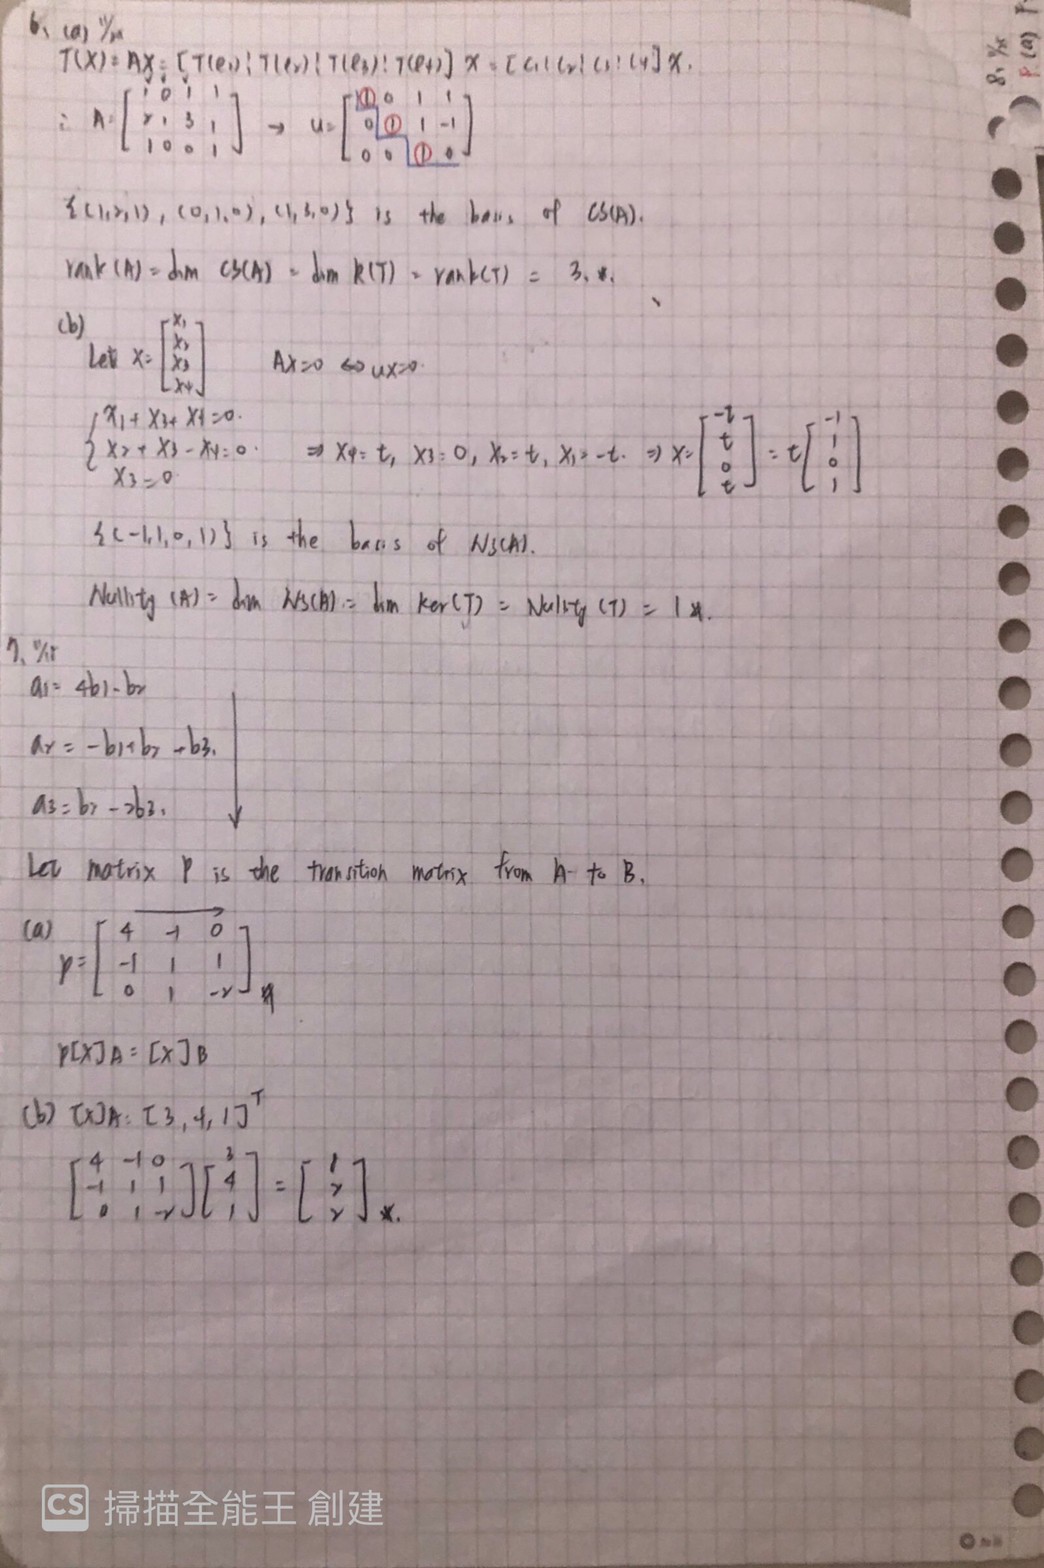 6. (a)
T(X) = AX = [T(e1) ¦ T(e2) ¦ T(e3) ¦ T(e4)] X = [C1 ¦ C2 ¦ C3 ¦ C4] X.
1 0 1 1
∴ A = [2 1 3 1] → U = [① 0 1 1
1 0 0 1
0 ① 1 -1
0 0 ① 0]
{(1,2,1), (0,1,0), (1,3,0)} is the basis of CS(A).
rank(A) = dim CS(A) = dim R(T) = rank(T) = 3.
(b)
Let X = [x1 x2 x3 x4] AX=0 ⇔ UX=0.
{ x1 + x3 + x4 = 0.
x2 + x3 - x4 = 0. ⇒ x4 = t, x3 = 0, x2 = t, x1 = -t. ⇒ X = [-t t 0 t] = t [-1 1 0 1]
x3 = 0
{(-1,1,0,1)} is the basis of NS(A).
Nullity (A) = dim NS(A) = dim Ker(T) = Nullity (T) = 1
7.
a1 = 4b1 - b2
a2 = -b1 + b2 + b3.
a3 = b2 - 2b3.
Let matrix P is the transition matrix from A to B.
(a)
P = [4 -1 0
-1 1 1
0 1 -2]
P[X]A = [X]B
(b) [X]A = [3, 4, 1]ᵀ
[4 -1 0 [3 [1
-1 1 1 4 = 2
0 1 -2] 1] 2]
CS 掃描全能王 創建